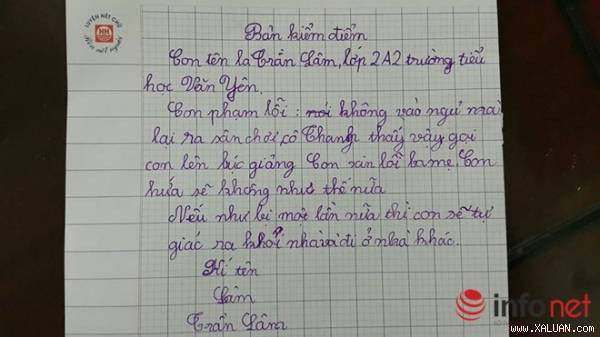 LUYỆN NÉT CHỮ
HH
Rèn nết người
Bản kiểm điểm
Con tên là Trần Lâm, lớp 2A2 trường tiểu
học Văn Yên.
Con phạm lỗi : nói không vào ngủ mà
lại ra sân chơi cô Thanh thấy vậy gọi
con lên bục giảng Con xin lỗi ba mẹ. Con
hứa sẽ không như thế nữa
Nếu như bị một lần nữa thì con sẽ tự
giác ra khỏi nhà và đi ở nhà khác.
Kí tên
Lâm
Trần Lâm
infonet
www.XALUAN.com